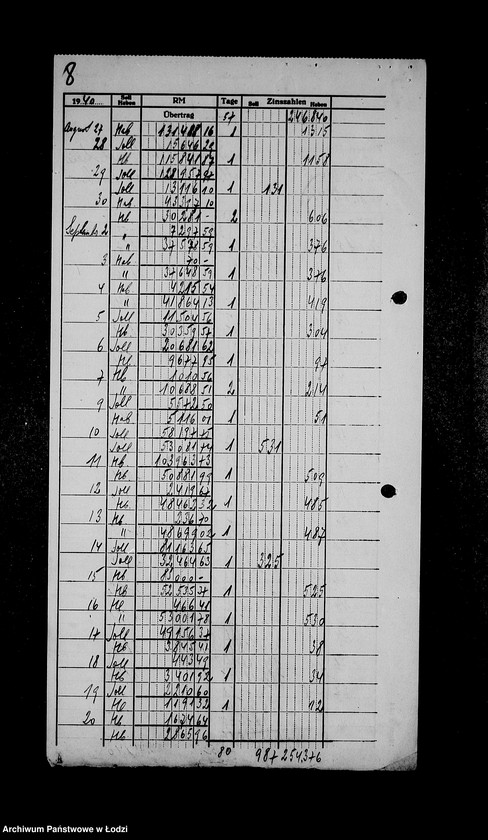 8
1940 Soll Haben RM Tage Soll Zinszahlen Haben
Übertrag 57 246.840
August 27 Hab 1 1315
28 Soll 15646 20
Hb 115841 87 1 1158
29 Soll
Soll 13116 10 1 131
30 Hab 43397 10
Hb 30281 - 2 606
Septemb. 2 " 7297 59
" 37578 59 1 376
3 Hab 70 -
" 37648 59 1 376
4 Hab 4215 54
" 41864 13 1 419
5 Soll 11504 56
Hb 30359 57 1 304
6 Soll 20681 62
Hb 9677 95 1 97
7 Hb 1010 56
" 10688 51 2 214
9 Soll 5572 50
Hab 5116 01 1 51
10 Soll 58197 75
Soll 53081 74 1 531
11 Hb 103963 73
Hb 50881 99 1 509
12 Soll 2419 67
Hb 48462 32 1 485
13 Hb 236 70
" 48699 02 1 487
14 Soll 81163 65
Soll 32464 63 1 325
15 Hb 85000 -
Hb 52535 37 1 525
16 Hb 466 41
" 53001 78 1 530
17 Soll 49156 37
Hb 3845 41 1 38
18 Soll 443 49
Hb 3401 92 1 34
19 Soll 2210 60
Hb 1191 32 1 12
20 Hb 1674 64
Hb 2865 96
80 987 254376
Archiwum Państwowe w Łodzi